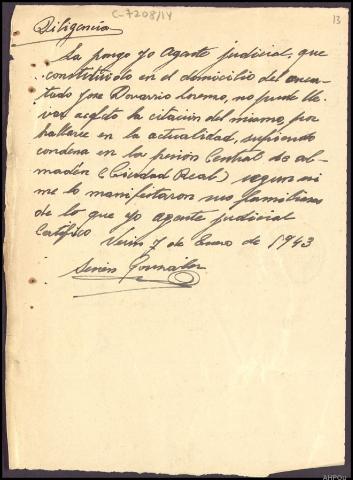 C-7208/14
13
Diligencia
La pongo yo Agente judicial, que
constituido en el domicilio del encar
tado Jose Lorenzo, no pude lle
var acfeto la citacion del mismo, por
hallarce en la actualidad, sufriendo
condena en la prision Central de Al
maden (Ciudad Real) segun asi
me lo manifestaron sus familiares
de lo que yo agente judicial
Certifico
Verin 7 de Enero de 1943
Gonzalez
AHPOu